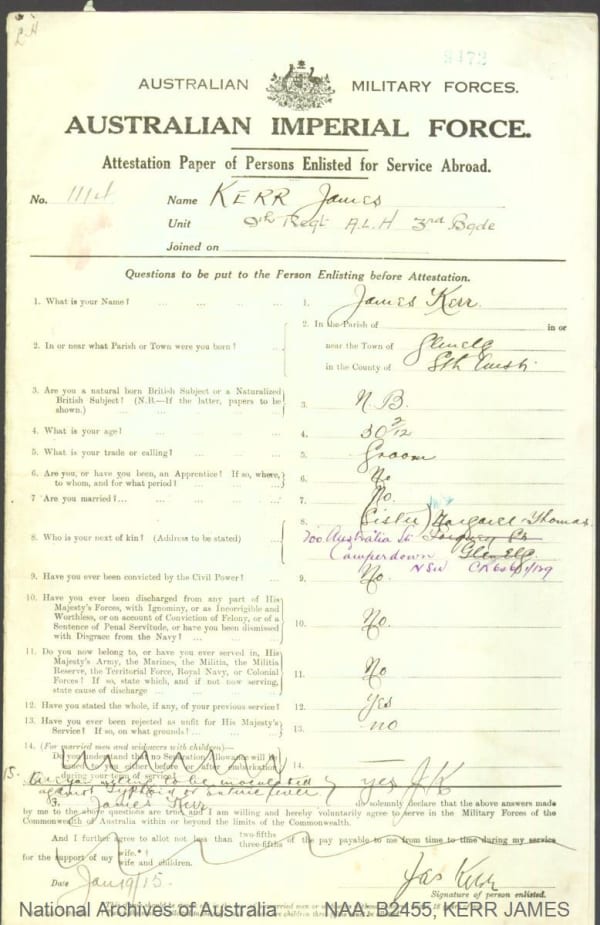 AUSTRALIAN MILITARY FORCES.
AUSTRALIAN IMPERIAL FORCE.
Attestation Paper of Persons Enlisted for Service Abroad.
No. Name KERR James
Unit 9th Regt A.L.H 3rd Bgde
Joined on
Questions to be put to the Person Enlisting before Attestation.
1. What is your Name? ... 1. James Kerr
2. In or near what Parish or Town were you born? ... 2. In the Parish of in or
near the Town of Glenelg
in the County of Sth Austr
3. Are you a natural born British Subject or a Naturalized
British Subject? (N.B.—If the latter, papers to be
shown.) ... 3. N.B.
4. What is your age? ... 4. 30 2/12
5. What is your trade or calling? ... 5. Groom
6. Are you, or have you been, an Apprentice? If so, where,
to whom, and for what period? ... 6. No
7. Are you married? ... 7. No.
8. Who is your next of kin? (Address to be stated) ... 8. (Sister) Margaret Thomas
Australia St
Camperdown Glenelg
NSW
9. Have you ever been convicted by the Civil Power? ... 9. No.
10. Have you ever been discharged from any part of His
Majesty's Forces, with Ignominy, or as Incorrigible and
Worthless, or on account of Conviction of Felony, or of a
Sentence of Penal Servitude, or have you been dismissed
with Disgrace from the Navy? ... 10. No.
11. Do you now belong to, or have you ever served in, His
Majesty's Army, the Marines, the Militia, the Militia
Reserve, the Territorial Force, Royal Navy, or Colonial
Forces? If so, state which, and if not now serving,
state cause of discharge ... 11. No
12. Have you stated the whole, if any, of your previous service? 12. Yes
13. Have you ever been rejected as unfit for His Majesty's
Service? If so, on what grounds? ... 13. no
14. (For married men and widowers with children)—
Do you understand that no Separation Allowance will be
issued to you either before or after embarkation
during your term of service? 14.
15. Are you willing to be inoculated
against Typhoid or enteric fever } yes J.K
I, James Kerr do solemnly declare that the above answers made
by me to the above questions are true, and I am willing and hereby voluntarily agree to serve in the Military Forces of the
Commonwealth of Australia within or beyond the limits of the Commonwealth.
And I further agree to allot not less than two-fifths three-fifths of the pay payable to me from time to time during my service
for the support of my wife.* wife and children.
Date Jan 19/15. Jas Kerr
Signature of person enlisted.
National Archives of Australia NAA: B2455, KERR JAMES